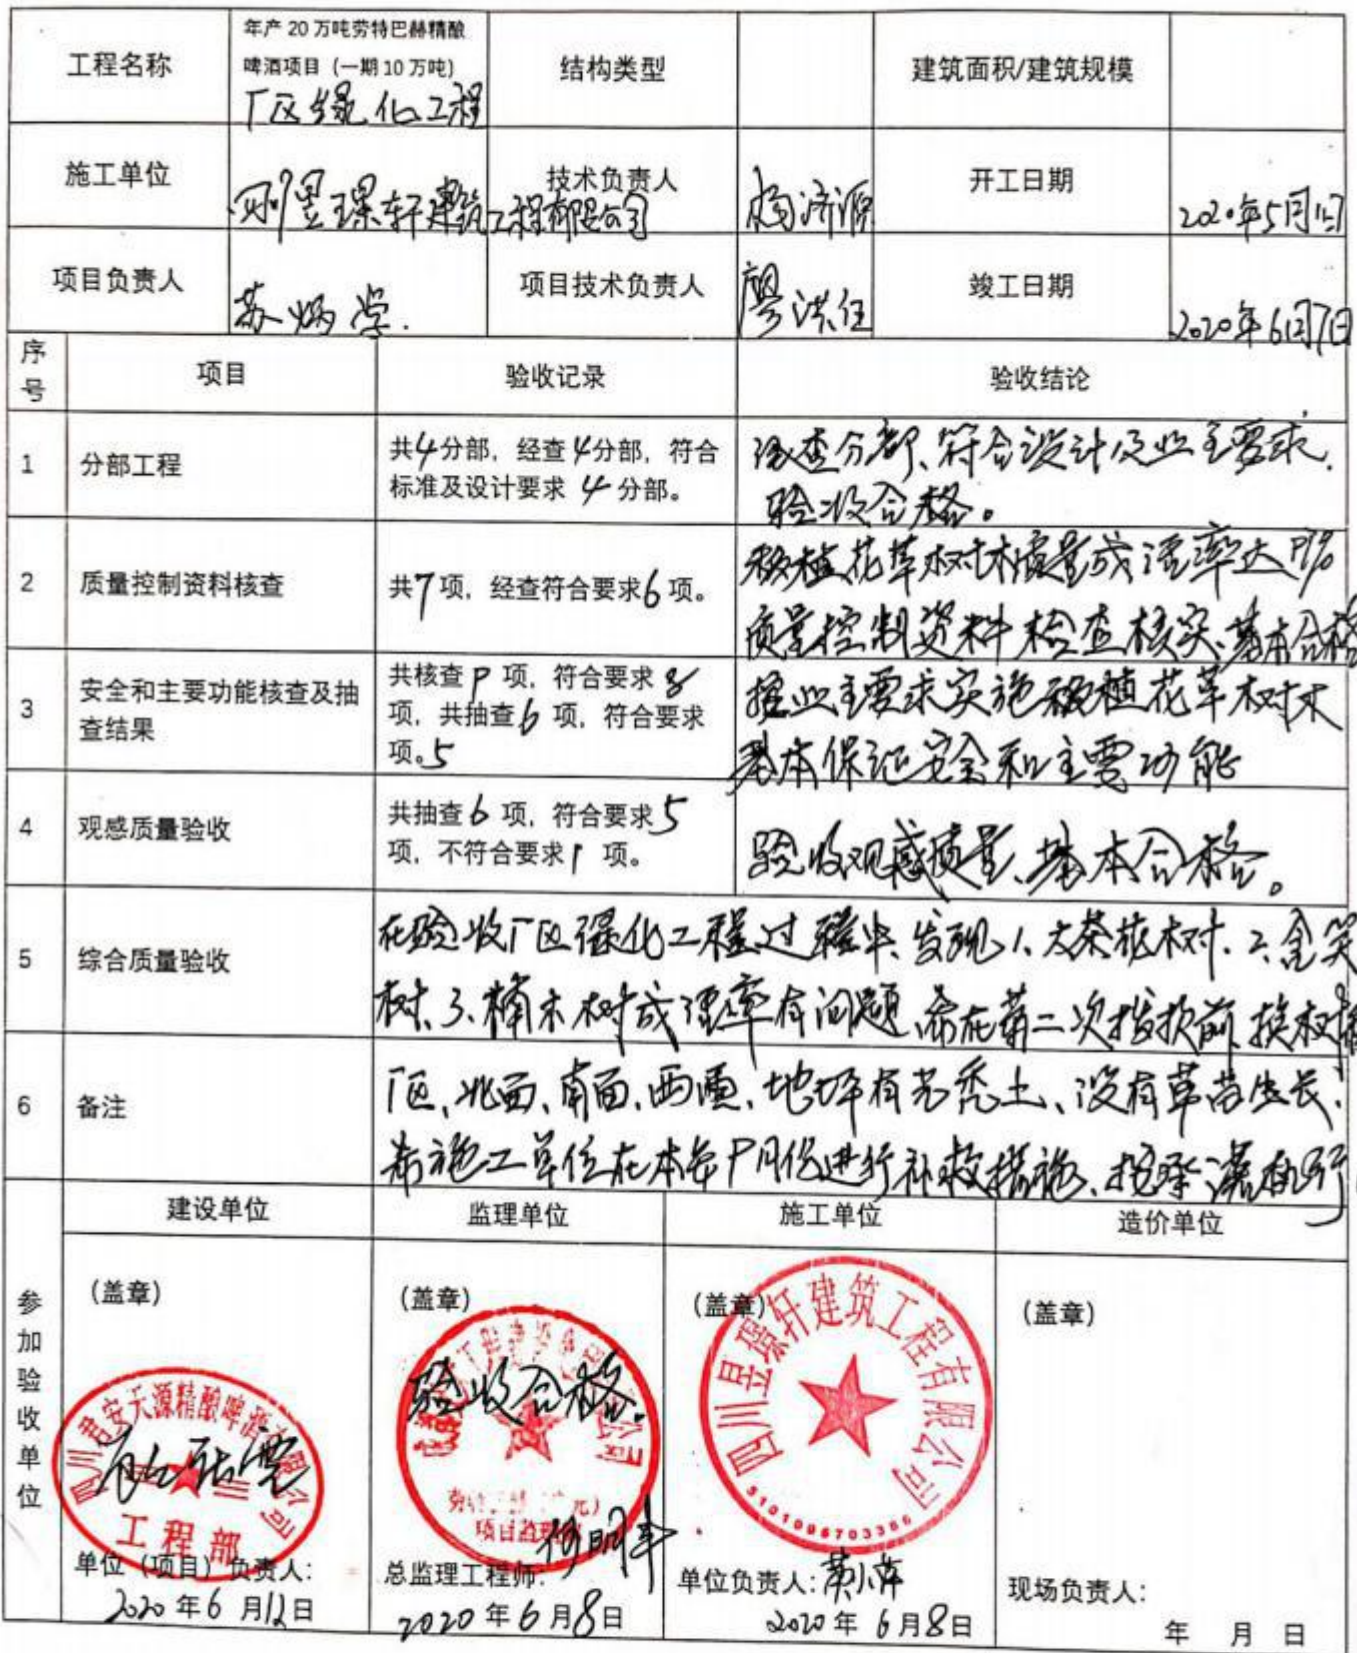 工程名称
年产 20 万吨劳特巴赫精酿
啤酒项目（一期 10 万吨）
厂区绿化工程
结构类型
建筑面积/建筑规模
施工单位
四川昱璟轩建筑工程有限公司
技术负责人
杨济源
开工日期
2020年5月1日
项目负责人
苏炳学.
项目技术负责人
廖洪任
竣工日期
2020年6月7日
序号
项目
验收记录
验收结论
1
分部工程
共4分部，经查4分部，符合
标准及设计要求 4 分部。
该查分部、符合设计及业主要求.
验收合格。
2
质量控制资料核查
共7项，经查符合要求6项。
移植花草树木质量成活率达
质量控制资料检查核实、基本合格
3
安全和主要功能核查及抽
查结果
共核查9项，符合要求8
项，共抽查6项，符合要求
项。5
按业主要求实施移植花草树木
基本保证安全和主要功能
4
观感质量验收
共抽查6项，符合要求5
项，不符合要求1项。
验收观感质量、基本合格。
5
综合质量验收
在验收厂区绿化工程过程中、发现 1、大茶花树. 2、含笑
树、3、楠木树成活率有问题、希在第二次拨款前、换树
6
备注
厂区、北面、南面、西面、地坪有光秃土、没有草苗生长、
希施工单位在本年9月份进行补救措施、
参加验收单位
建设单位
监理单位
施工单位
造价单位
（盖章）
（盖章）
（盖章）
（盖章）
四川君安天源精酿啤酒有限公司
工程部
验收合格.
项目监理
四川昱璟轩建筑工程有限公司
单位（项目）负责人：
2020年6月12日
总监理工程师：
何明丰
2020年6月8日
单位负责人：黄小萍
2020年6月8日
现场负责人：
年 月 日